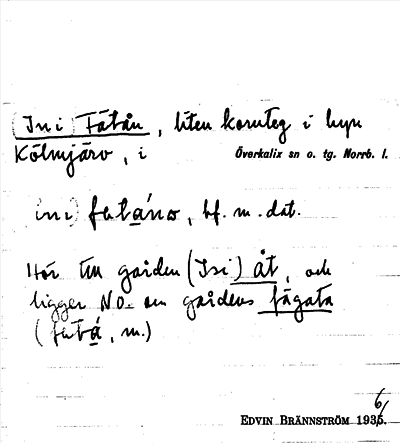 (Ini) Fatån, liten kornteg i byn
Kölmjärv, i Överkalix sn o. tg. Norrb. l.
(ini) fatåno, bf. m. dat.
Hör till gården (Isi) åt, och
ligger NO. om gårdens fägata
(futå, m.)
EDVIN BRÄNNSTRÖM 1936.